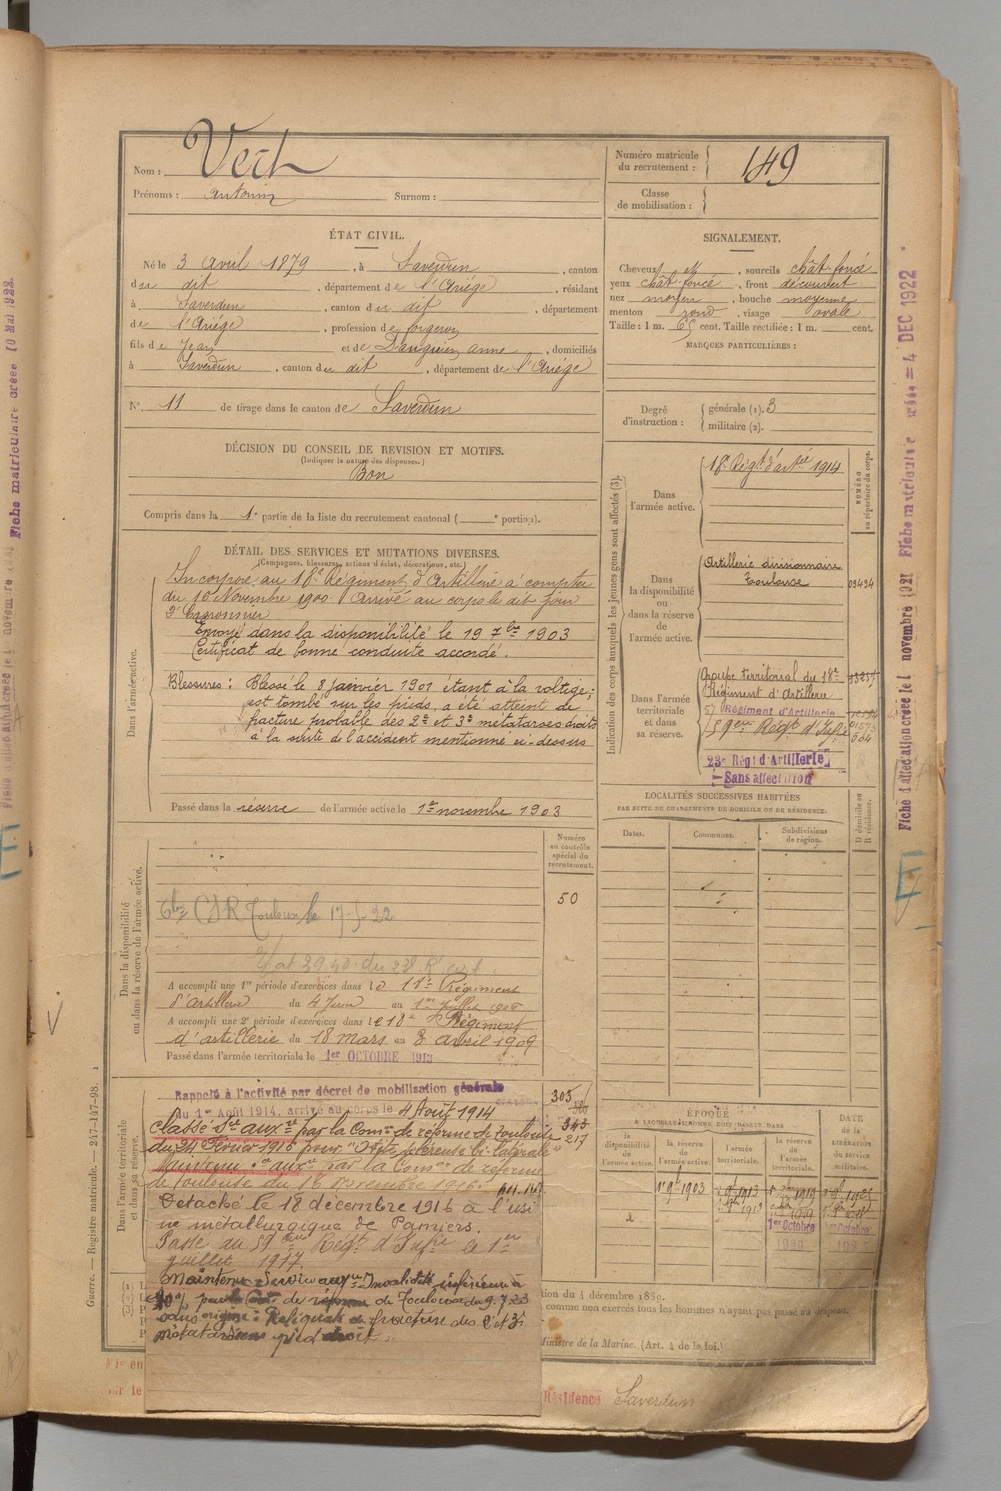 Nom : Vert
Prénoms : Antonin Surnom :
Numéro matricule du recrutement : 149
Classe de mobilisation :
ÉTAT CIVIL.
Né le 3 Avril 1879, à Saverdun, canton
du dit, département de l'Ariège, résidant
à Saverdun, canton du dit, département
de l'Ariège, profession de forgeron
fils de Jean et de Anne, domiciliés
à Saverdun, canton du dit, département de l'Ariège
N° 11 de tirage dans le canton de Saverdun
SIGNALEMENT.
Cheveux et, sourcils chât-foncé
yeux chât-foncé, front découvert
nez moyen, bouche moyenne
menton rond, visage ovale
Taille : 1 m. 65 cent. Taille rectifiée : 1 m. cent.
MARQUES PARTICULIÈRES :
Degré d'instruction : générale (1). 3
militaire (2).
DÉCISION DU CONSEIL DE REVISION ET MOTIFS.
(Indiquer la nature des dispenses.)
Bon
Compris dans la 1e partie de la liste du recrutement cantonal ( e portion).
DÉTAIL DES SERVICES ET MUTATIONS DIVERSES.
(Campagnes, blessures, actions d'éclat, décorations, etc.)
Dans l'armée active.
Incorporé au 18e Régiment d'Artillerie à compter
du 16 Novembre 1900. Arrivé au corps le dit jour
2e Canonnier
Envoyé dans la disponibilité le 19 7bre 1903
Certificat de bonne conduite accordé.
Blessures : Blessé le 8 janvier 1901 étant à la voltige;
est tombé sur les pieds, a été atteint de
fracture probable des 2e et 3e métatarses droits
à la suite de l'accident mentionné ci-dessus
Passé dans la réserve de l'armée active le 1er novembre 1903
Indication des corps auxquels les jeunes gens sont affectés (3).
NUMÉRO au répertoire du corps.
Dans l'armée active.
18e Régt d'artie 1914
Dans la disponibilité ou dans la réserve de l'armée active.
Artillerie divisionnaire
Toulouse 03434
Dans l'armée territoriale et dans sa réserve.
Groupe territorial du 18e
Régiment d'Artillerie
57 Régiment d'Artillerie
59em Régt d'Infie 564
23e Régt d'Artillerie
Sans affectation
LOCALITÉS SUCCESSIVES HABITÉES
PAR SUITE DE CHANGEMENTS DE DOMICILE OU DE RÉSIDENCE.
Dates. Communes. Subdivisions de région. D domicile ou R résidence.
Numéro au contrôle spécial du recrutement.
50
Dans la disponibilité ou dans la réserve de l'armée active.
CSR Toulouse le 17-5-22
A accompli une 1re période d'exercices dans le 11e Régiment
d'Artillerie du 4 Juin au 1er Juillet 1906
A accompli une 2e période d'exercices dans le 18e Régiment
d'artillerie du 18 mars au 3 avril 1909
Passé dans l'armée territoriale le 1er OCTOBRE 1913
Dans l'armée territoriale et dans sa réserve.
Rappelé à l'activité par décret de mobilisation générale
du 1er Août 1914, arrivé au corps le 4 Août 1914
303
345
217
classé Sce auxre par la Comon de réforme de Toulouse
du 24 Février 1916 pour "Otite scléreuse bi-latérale"
Maintenu Sce auxre par la Comon de réforme
de Toulouse du 16 Novembre 1916.
Détaché le 18 décembre 1916 à l'usi
ne métallurgique de Pamiers.
Passé au 59ème Régt d'Infie le 1er
juillet 1917.
Maintenu Service auxre Invalidité inférieure à
10 % par la Con de réforme de Toulouse du 9.7.23
sans origine : Reliquat de fracture des 2e et 3e
métatarsiens pied droit.
ÉPOQUE
À LAQUELLE L'HOMME DOIT PASSER DANS
la disponibilité de l'armée active. la réserve de l'armée active. l'armée territoriale. la réserve de l'armée territoriale.
DATE de la LIBÉRATION du service militaire.
1r 9b 1903
1er Octobre
1er Octobre
tion du 4 décembre 1889.
comme non exercés tous les hommes n'ayant pas passé au drapeau.
Ministre de la Marine. (Art. 4 de la loi.)
Résidence Saverdun
Guerre. — Registre matricule. — 247-147-98. 1
Fiche d'affectation créée le 1 novembre 1921 Fiche matriculaire créée = 4 DEC 1922
Fiche matriculaire créée 10 Mai 1923.